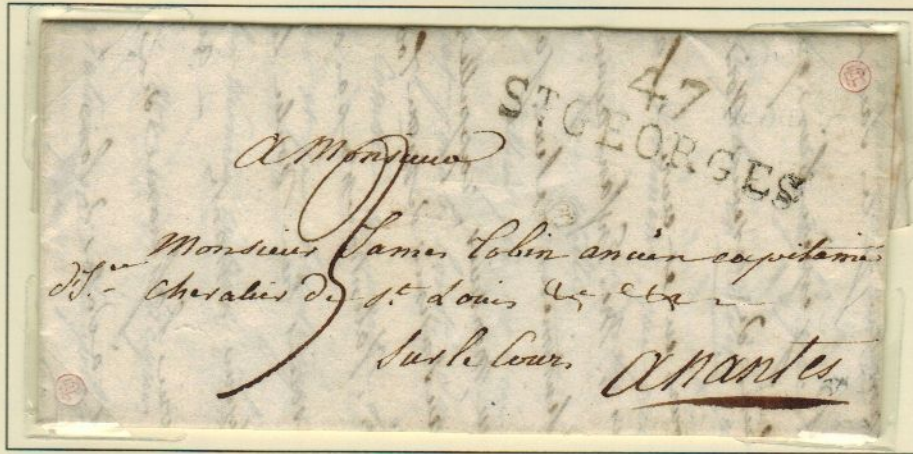 47
ST GEORGES
A Monsieur
Monsieur James Tobin ancien capitaine
chevalier de St Louis &c
Sur le Cours
A nantes